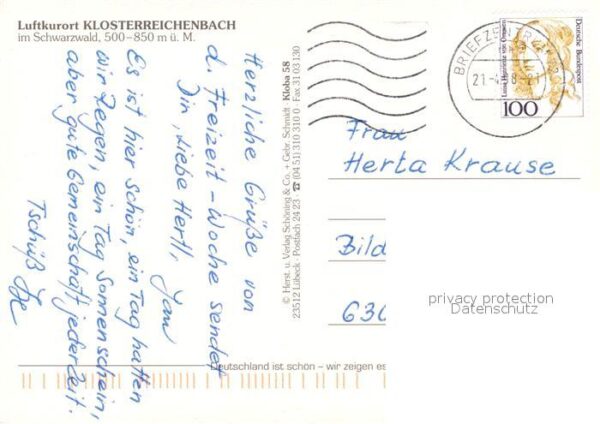 Luftkurort KLOSTERREICHENBACH
im Schwarzwald, 500–850 m ü. M.
Herzliche Grüße von
d. Freizeit-Woche sendet
Dir, liebe Hertl,
Es ist hier schön, ein Tag hatten
wir Regen, ein Tag Sonnenschein,
aber gute Gemeinschaft jederzeit.
Tschüß
© Herst. u. Verlag Schöning & Co. + Gebr. Schmidt · Kloba 58
23512 Lübeck · Postfach 24 23 · ☎ (04 51) 310 310 0 · Fax 31 03 130
Deutschland ist schön – wir zeigen es
BRIEFZENTRUM
21
Deutsche Bundespost
100
Frau
Herta Krause
Bild
630
privacy protection
Datenschutz